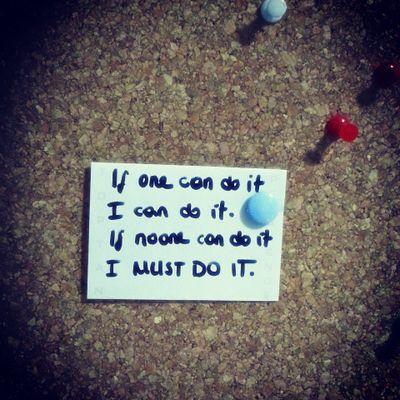 If one can do it
I can do it.
If noone can do it
I MUST DO IT.